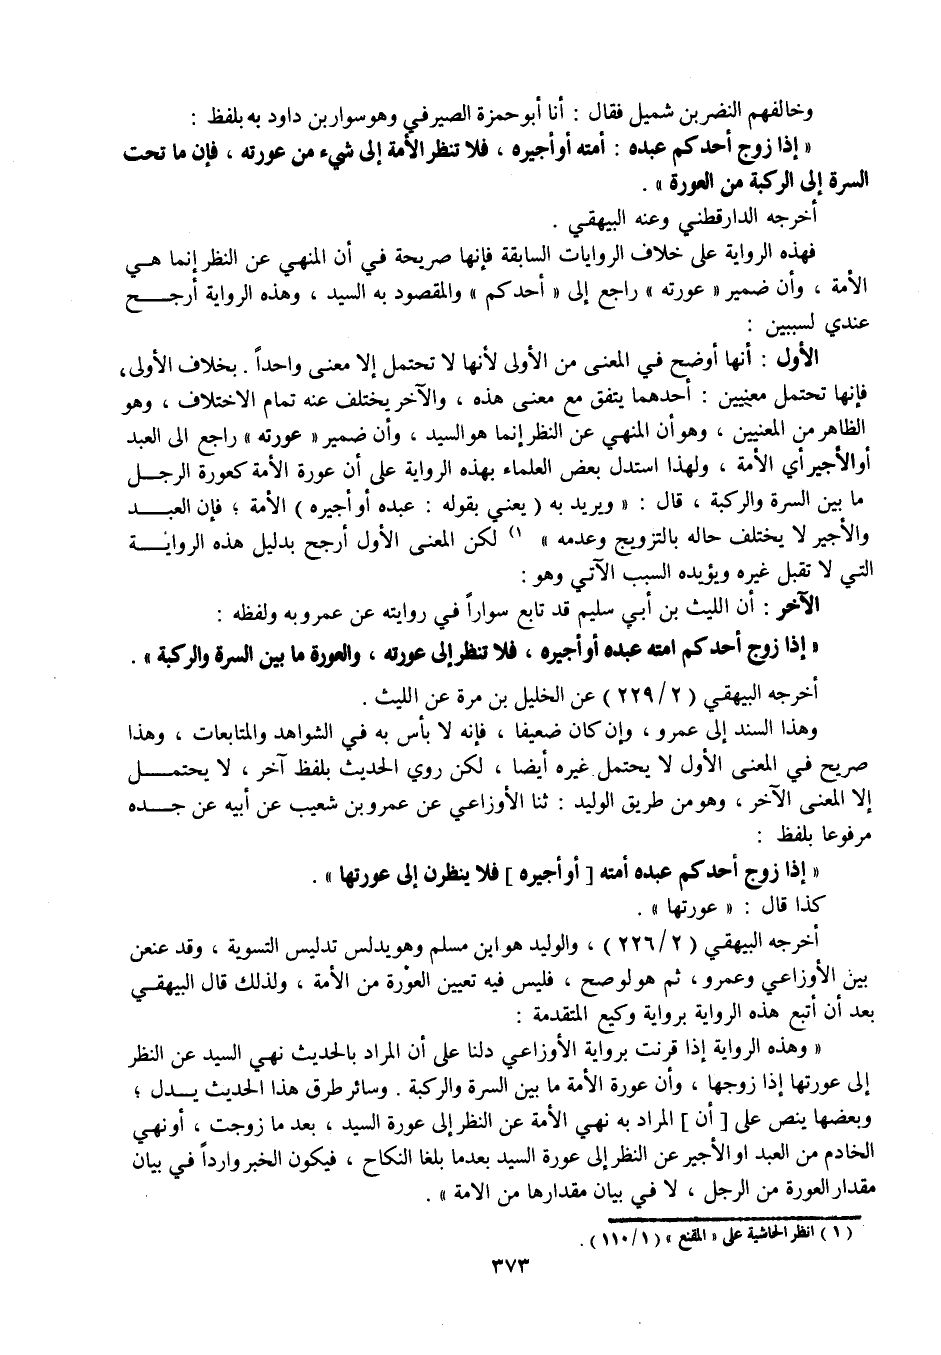 وخالفهم النضر بن شميل فقال : أنا أبو حمزة الصيرفي وهو سوار بن داود به بلفظ :
« إذا زوج أحدكم عبده : أمته أو أجيره ، فلا تنظر الأمة إلى شيء من عورته ، فإن ما تحت
السرة إلى الركبة من العورة » .
أخرجه الدارقطني وعنه البيهقي .
فهذه الرواية على خلاف الروايات السابقة فإنها صريحة في أن المنهي عن النظر إنما هي
الأمة ، وأن ضمير « عورته » راجع إلى « أحدكم » والمقصود به السيد ، وهذه الرواية أرجح
عندي لسببين :
الأول : أنها أوضح في المعنى من الأولى لأنها لا تحتمل إلا معنى واحداً . بخلاف الأولى،
فإنها تحتمل معنيين : أحدهما يتفق مع معنى هذه ، والآخر يختلف عنه تمام الاختلاف ، وهو
الظاهر من المعنيين ، وهو أن المنهي عن النظر إنما هو السيد ، وأن ضمير « عورته » راجع الى العبد
أو الأجير أي الأمة ، ولهذا استدل بعض العلماء بهذه الرواية على أن عورة الأمة كعورة الرجل
ما بين السرة والركبة ، قال : « ويريد به ( يعني بقوله : عبده أو أجيره ) الأمة ؛ فإن العبد
والأجير لا يختلف حاله بالتزويج وعدمه » ١) لكن المعنى الأول أرجح بدليل هذه الرواية
التي لا تقبل غيره ويؤيده السبب الآتي وهو :
الآخر : أن الليث بن أبي سليم قد تابع سواراً في روايته عن عمرو به ولفظه :
« إذا زوج أحدكم امته عبده أو أجيره ، فلا تنظر إلى عورته ، والعورة ما بين السرة والركبة » .
أخرجه البيهقي ( ٢/ ٢٢٩ ) عن الخليل بن مرة عن الليث .
وهذا السند إلى عمرو ، وإن كان ضعيفا ، فإنه لا بأس به في الشواهد والمتابعات ، وهذا
صريح في المعنى الأول لا يحتمل غيره أيضا ، لكن روي الحديث بلفظ آخر ، لا يحتمل
إلا المعنى الآخر ، وهو من طريق الوليد : ثنا الأوزاعي عن عمرو بن شعيب عن أبيه عن جده
مرفوعا بلفظ :
« إذا زوج أحدكم عبده أمته [ أو أجيره ] فلا ينظرن إلى عورتها » .
كذا قال : « عورتها » .
أخرجه البيهقي ( ٢/ ٢٢٦ ) ، والوليد هو ابن مسلم وهو يدلس تدليس التسوية ، وقد عنعن
بين الأوزاعي وعمرو ، ثم هو لو صح ، فليس فيه تعيين العورة من الأمة ، ولذلك قال البيهقي
بعد أن أتبع هذه الرواية برواية وكيع المتقدمة :
« وهذه الرواية إذا قرنت برواية الأوزاعي دلنا على أن المراد بالحديث نهي السيد عن النظر
إلى عورتها إذا زوجها ، وأن عورة الأمة ما بين السرة والركبة . وسائر طرق هذا الحديث يدل ؛
وبعضها ينص على [ أن ] المراد به نهي الأمة عن النظر إلى عورة السيد ، بعد ما زوجت ، أو نهي
الخادم من العبد او الأجير عن النظر إلى عورة السيد بعدما بلغا النكاح ، فيكون الخبر وارداً في بيان
مقدار العورة من الرجل ، لا في بيان مقدارها من الامة » .
( ١ ) انظر الحاشية على « المقنع » (١/ ١١٠) .
٣٧٣